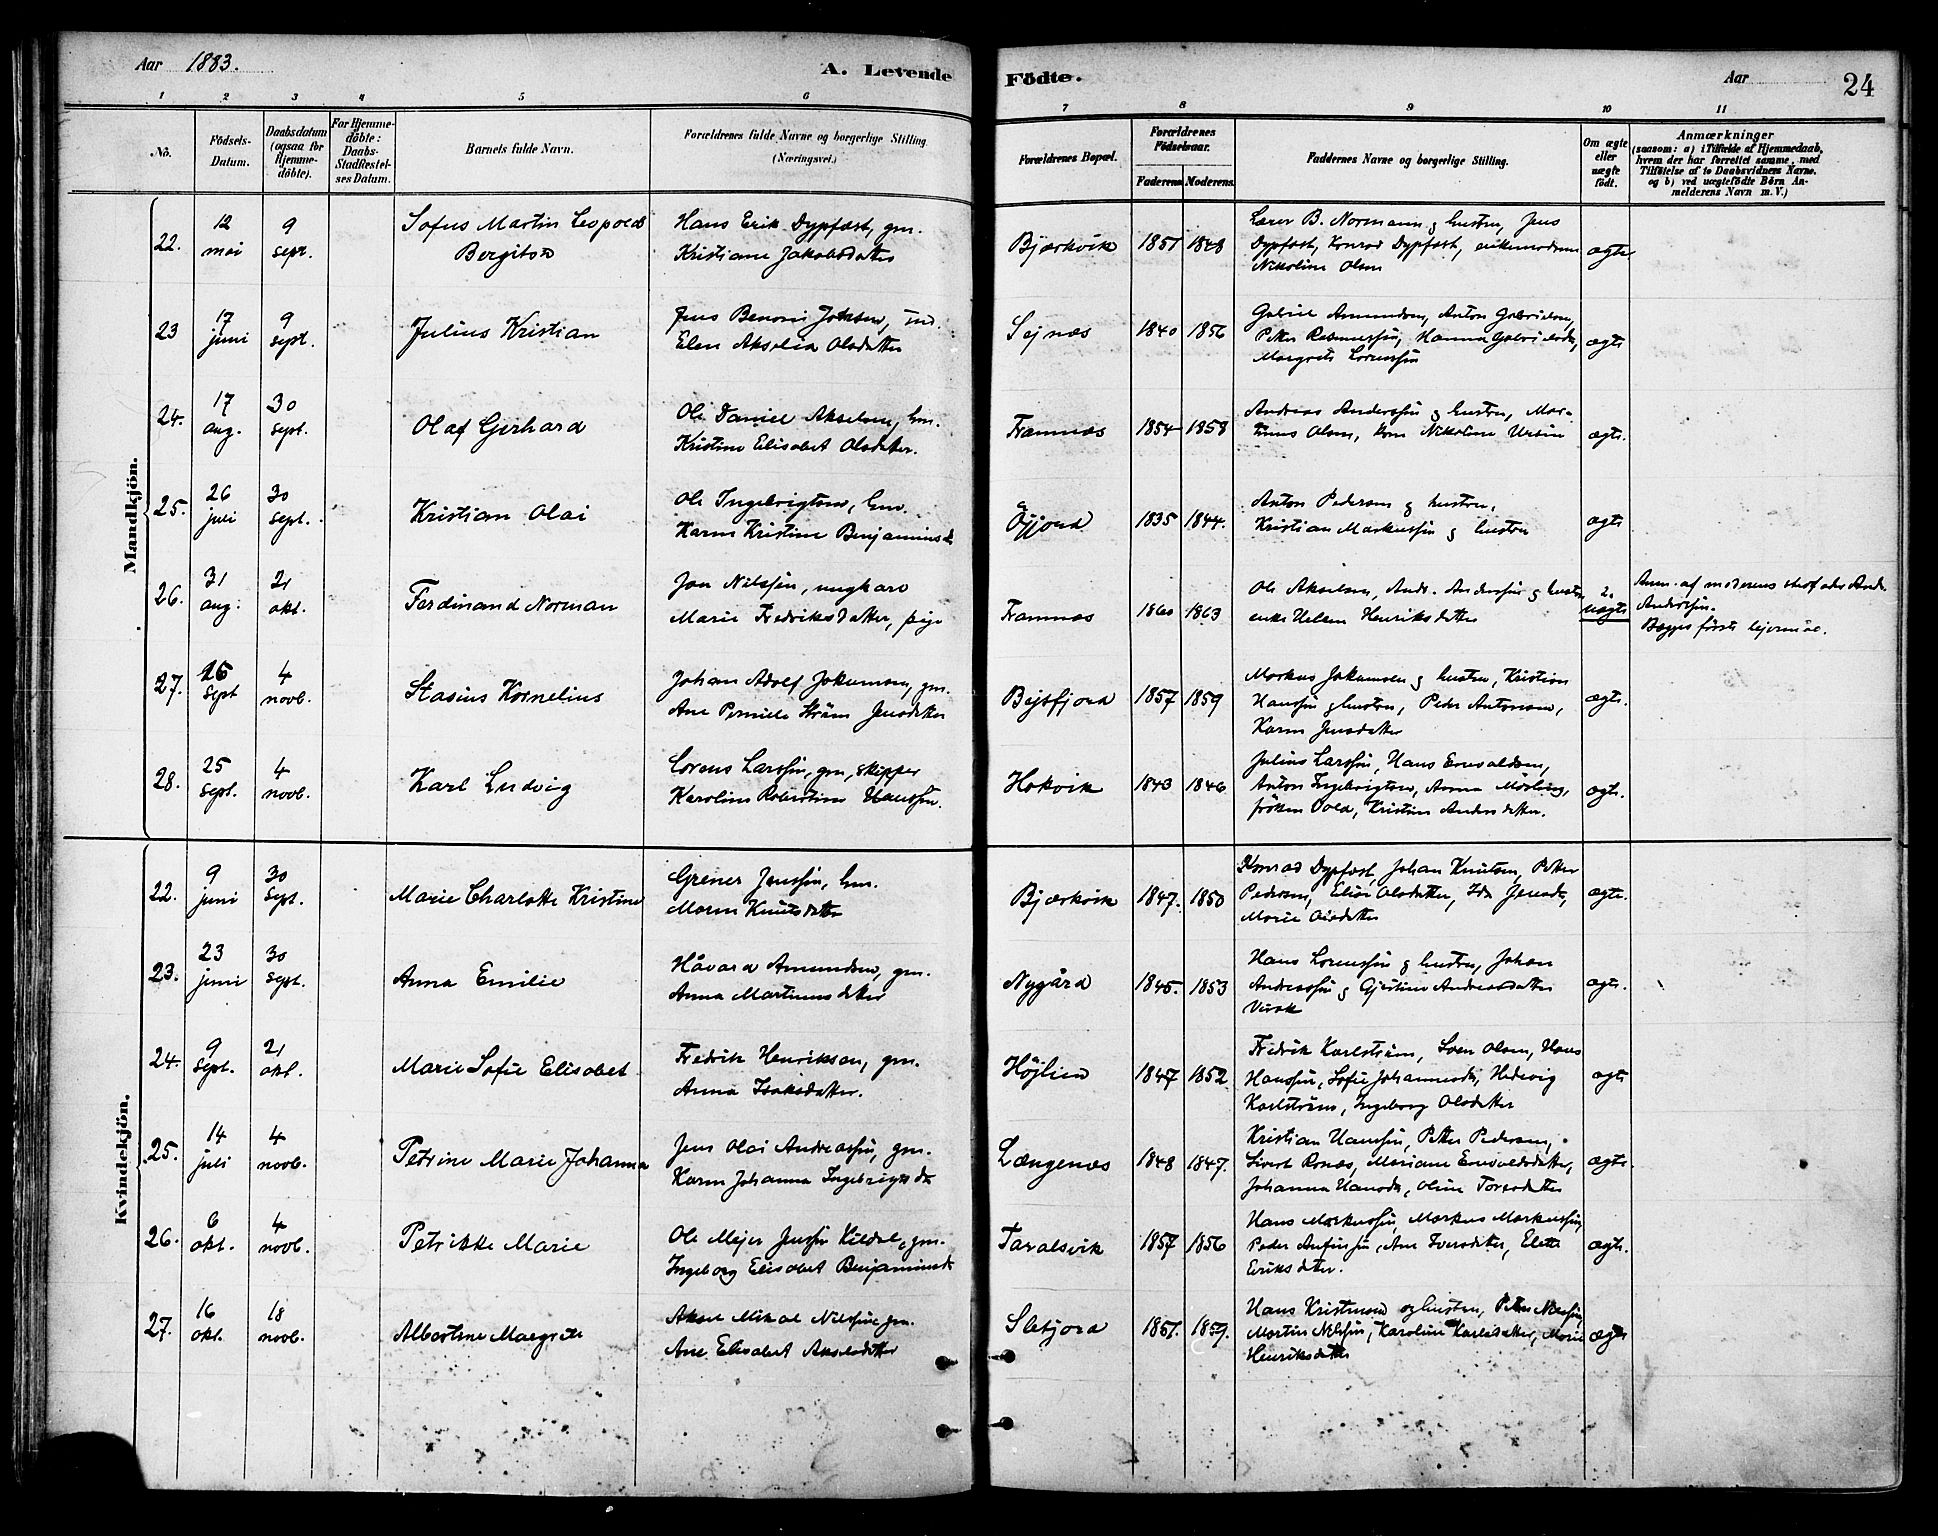 Aar 1883.
A. Levende Födte.
Aar
24
1 2 3 4 5 6 7 8 9 10 11
No.
Födsels-Datum.
Daabsdatum (ogsaa for Hjemme-döbte).
For Hjemme-döbte: Daabs-Stadfæstel-ses Datum.
Barnets fulde Navn.
Forældrenes fulde Navne og borgerlige Stilling (Næringsvei.)
Forældrenes Bopæl.
Forældrenes Födselsaar.
Faderens. Moderens.
Faddernes Navne og borgerlige Stilling.
Om ægte eller uægte födt.
Anmærkninger
(saasom: a) i Tilfælde af Hjemmedaab, hvem der har forrettet samme, med Tilföielse af to Daabsvidners Navne, og b) ved uægtefödte Börn Anmelderens Navn m. V.)
Mandkjön.
22. 12 mai 9 sept. Sofus Martin Leopold Bergiton
Hans Erik Dypfæst, gm.
Kristiane Jakobsdatter
Bjærkvik 1851 1848
Lærer B. Normann g hustru, Jens
Dypfæst, Konrad Dypfæst, enkemadam
Nikoline Olsen
ægte
23 17 juni 9 sept. Julius Kristian
Jens Benoni Johnsen, ind.
Elen Akselia Olsdatter
Sejnæs 1840 1856
Gabriel Amundsen, Anton Gabrielsen,
Petter Rasmussen, Hanna Gabrielsdr,
Margrete Lorenssen
ægte
24. 17 aug. 30 sept. Olaf Gerhard
Ole Daniel Akselsen, hm.
Kristine Elisabet Olsdatter.
Framnæs 1854 1858
Andreas Anderssen g hustru, Mar-
tinus Olsen, Nikoline
ægte.
25. 26 juli 30 sept. Kristian Olai
Ole Ingebrigtsen, hm.
Karen Kristine Benjaminsd
Öjjord 1835 1844.
Anton Pedersen g hustru,
Kristian Markussen g hustru
ægte
26. 31 aug. 21 okt. Ferdinand Norman
Jon Nilssen, ungkarl
Marie Fredriksdatter, pige
Framnæs 1860 1863
Ole Akselsen, Andr. Anderssen g hustru
enke Helen Henriksdatter
2. uægte
Anm. af moderens stefader Andr.
Anderssen.
Begges förste lejermål.
27. 26 sept 4 novb. Stasius Kornelius
Johan Adolf Jokumsen, gm.
Ane Pernille Ström Jensdatter
Bejsfjord 1857 1859
Markus Jokumsen g hustru, Kristian
Hanssen g hustru, Peder Antonsen,
Karen Jensdatter
ægte.
28. 25 sept. 4 novb. Karl Ludvig
Lorens Larssen, gm, skipper
Karoline Robertine Hanssen.
Hokvik 1843 1846
Julius Larssen, Hans Enevoldsen,
Anton Ingebrigtsen, Anna
fröken Vold, Kristine Andersdatter.
ægte.
Kvindekjön.
22. 9 juni 30 sept. Marie Charlotte Kristine
Grener Jenssen, hm.
Maren Knutsdatter
Bjærkvik 1847. 1850
Konrad Dypfæst, Johan Knutsen, Peter
Pedersen, Elise Olsdatter, Ida Jensdr,
Marie Olsdatter
ægte.
23. 23 juni 30 sept. Anna Emilie
Håvard Amundsen, gm.
Anna Martinusdatter
Nygård 1845. 1853
Hans Lorenssen g hustru, Johan
Andreassen g Gjertine Andreasdatter
ægte.
24. 9 sept. 21 okt. Marie Sofie Elisabet
Fredrik Henriksen, gm.
Anna Isaksdatter.
Höjlien 1847 1852
Fredrik Karlström, Sven Olsen, Hans
Hanssen, Sofie Johannesdr, Hedevig
Karlström, Ingeborg Olsdatter
ægte
25. 14 juli 4 novb. Petrine Marie Johanna
Jens Olai Andreassen, gm.
Karen Johanna Ingebrigtsdr
Længenæs 1848 1847.
Kristian Hanssen, Petter Pedersen,
Sivert Ronæs, Mariane Enevoldsdatter,
Johanna Hansdr, Oline Torsdatter
ægte.
26. 6 okt. 4 novb. Petrikke Marie
Ole Mejer Jenssen Kildal, gm.
Ingeborg Elisabet Benjaminsdr
Taralsvik 1857 1856
Hans Markussen, Markus Markussen,
Peder Anfinsen, Ane Iversdatter, Elette
Eriksdatter.
ægte.
27. 16 okt. 18 novb. Albertine Margrete
Aksel Mikal Nilssen gm.
Ane Elisabet Akselsdatter
Sletjord 1857. 1859.
Hans Kristensen og hustru, Peter Nilssen,
Martin Nilssen, Karoline Karlsdatter, Marie
Henriksdatter
ægte